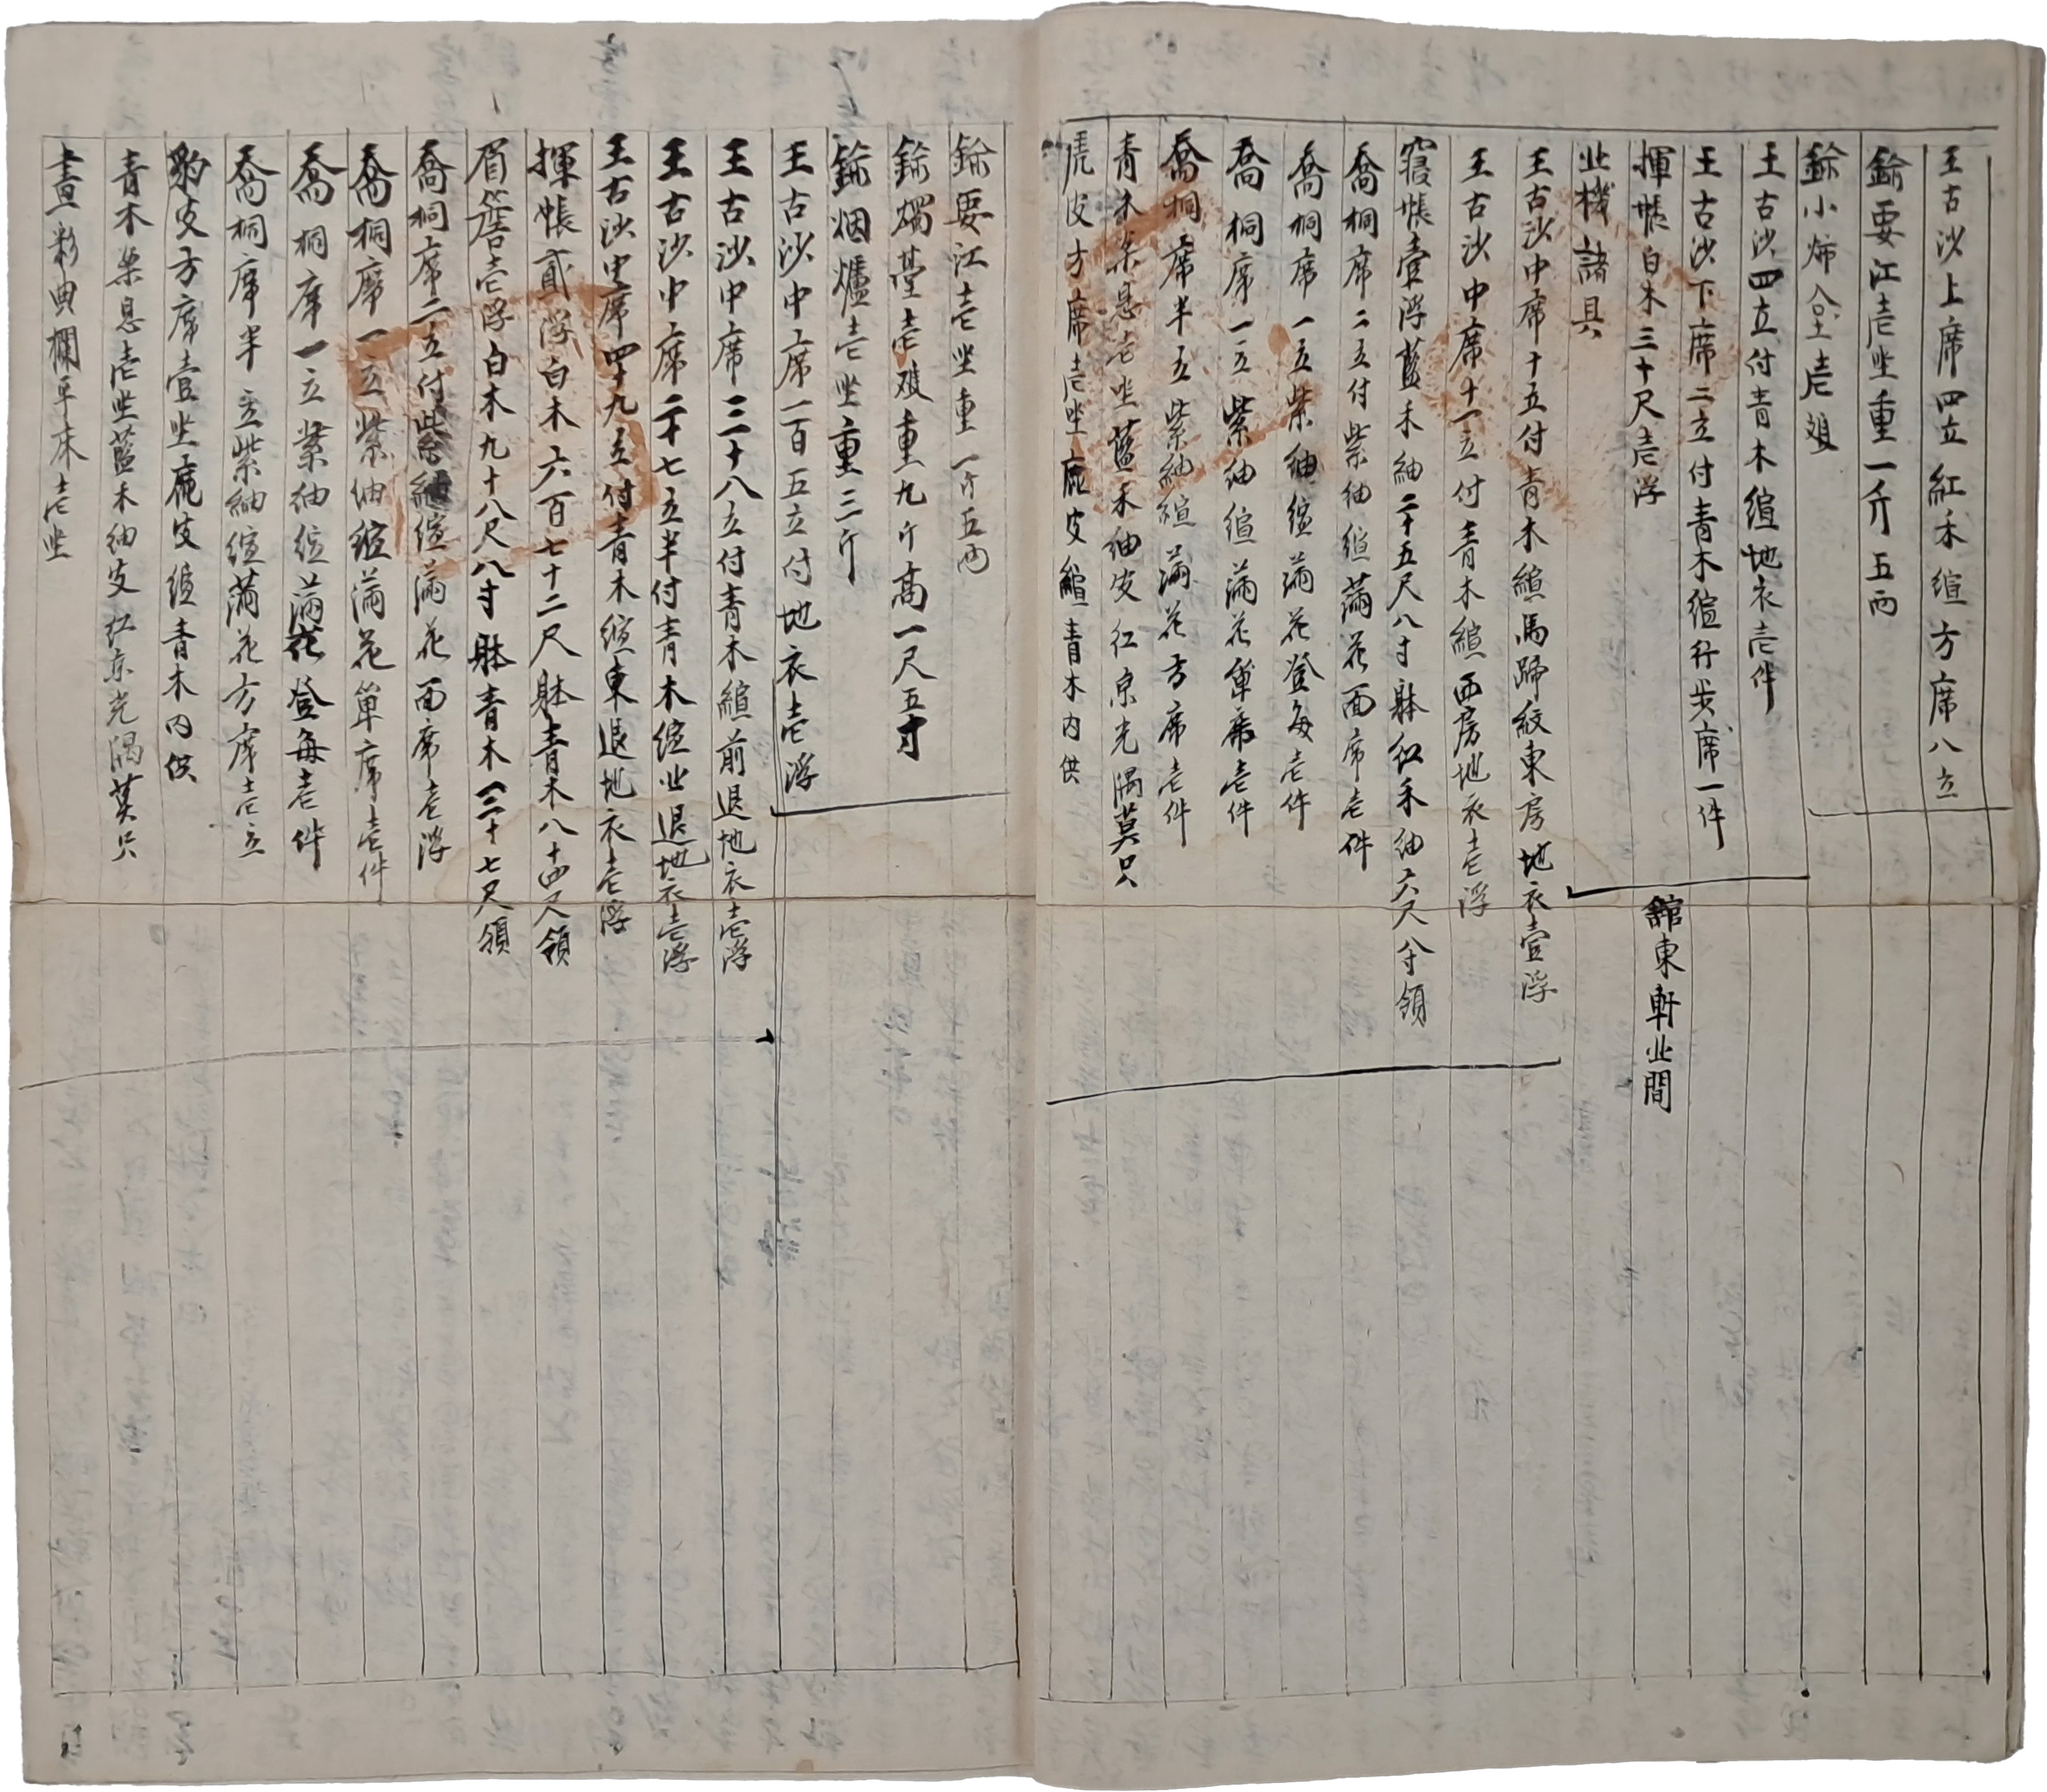 王古沙上席四立紅禾縇方席八立
鍮要江壱坐重一斤五両
鍮小㧊盒壱
王古沙四立付青木縇地衣壱件
王古沙下席二立付青木縇行步席一件
揮帳白木三十尺壱浮
舘東軒北間
北機諸具
王古沙中席十五付青木縇馬蹄紋東房地衣壹浮
王古沙中席十一立付青木縇西房地衣壱浮
寢帳壹浮藍禾紬二十五尺八寸躰紅禾紬六尺八寸領
喬桐席二立付紫紬縇滿花面席壱件
喬桐席一立紫紬縇滿花登每壱件
喬桐席一立紫紬縇滿花單席壱件
喬桐席半立紫紬縇滿花方席壱件
青木案息壱坐藍禾紬皮紅京光隅莫只
虎皮方席壱坐鹿皮縇青木內供
鍮要江壱坐重一斤五両
鍮燭臺壱雙重九斤高一尺五寸
鍮烟爐壱坐重三斤
王古沙中席一百五立付地衣壱浮
王古沙中席三十八立付青木縇前退地衣壱浮
王古沙中席二十七立半付青木縇北退地衣壱浮
王古沙中席四十九立付青木縇東退地衣壱浮
揮帳貳浮白木六百七十二尺躰青木八十四尺領
眉簷壱浮白木九十八尺八寸躰青木三十七尺領
喬桐席二立付紫紬縇滿花面席壱浮
喬桐席一立紫紬縇滿花單席壱件
喬桐席一立紫紬縇滿花登每壱件
喬桐席半立紫紬縇滿花方席壱立
豹皮方席壹坐鹿皮縇青木內供
青木案息壱坐藍禾紬皮紅京光隅莫只
畫彩曲欄平床壱坐